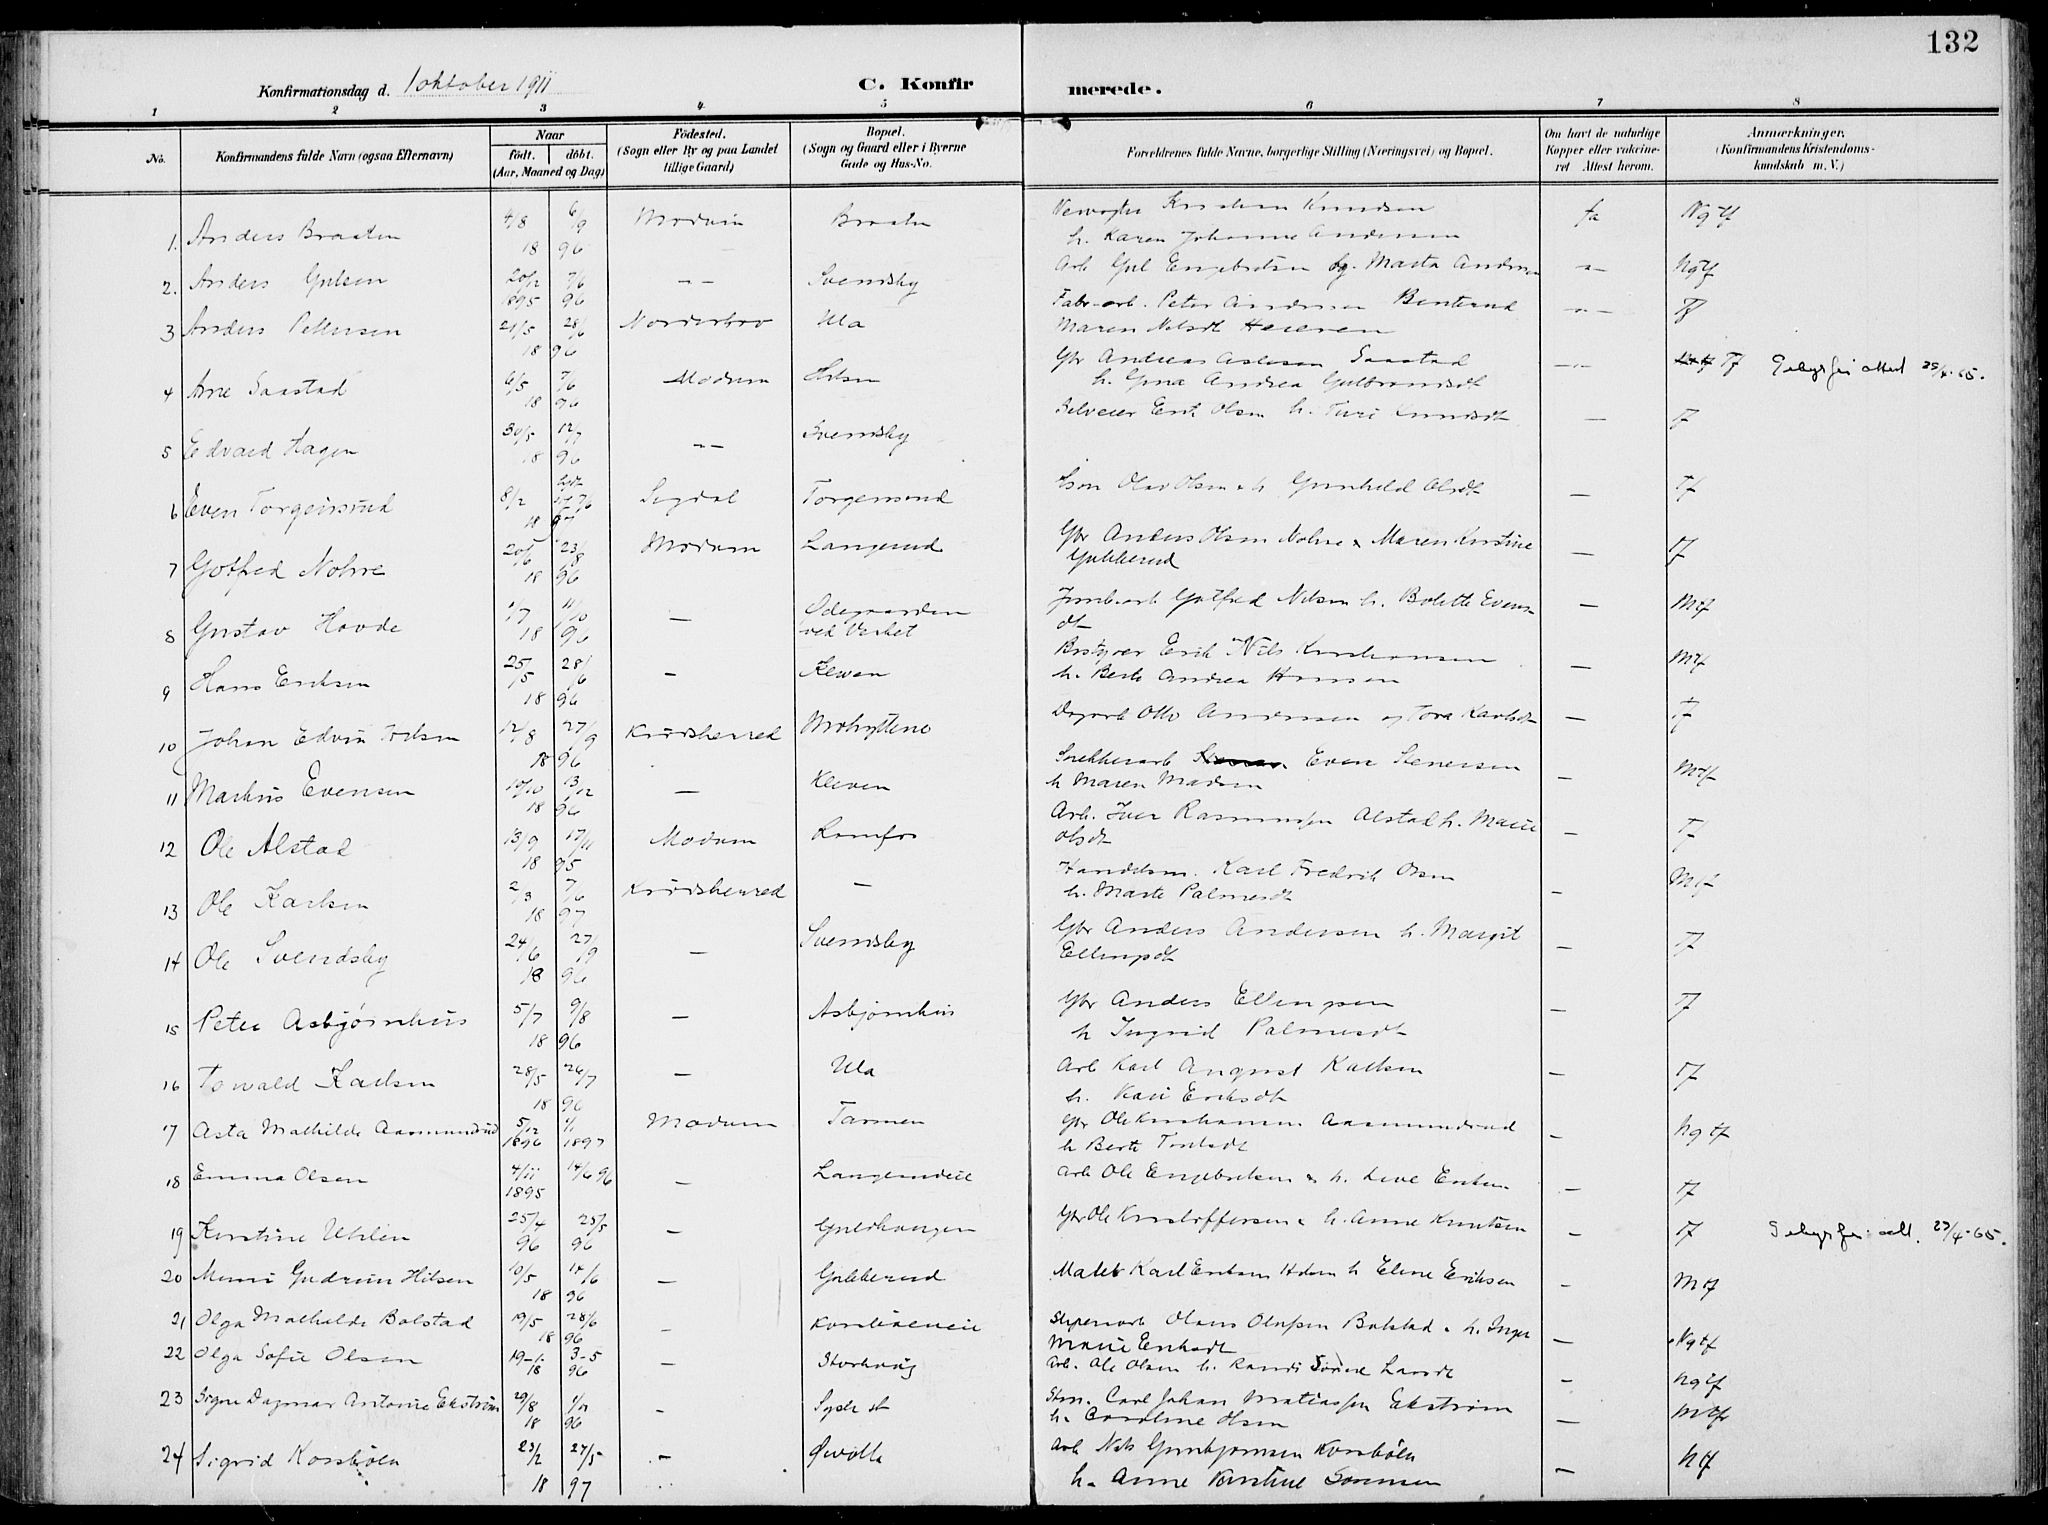 132
Konfirmationsdag d. 1 oktober 1911
C. Konfirmerede.
1 2 3 4 5 6 7 8
No.
Konfirmandens fulde Navn (ogsaa Efternavn)
Naar
født. døbt.
(Aar, Maaned og Dag)
Fødested.
(Sogn eller By og paa Landet
tillige Gaard)
Bopæl.
(Sogn og Gaard eller i Byerne
Gade og Hus-No.
Forældrenes fulde Navne, borgerlige Stilling (Næringsvei) og Bopæl.
Om havt de naturlige
Kopper eller vakcine-
ret Attest herom.
Anmærkninger.
(Konfirmandens Kristendoms-
kundskab m. V.)
1. Anders Braaten 4/8 6/9 Modum Braaten Kristian Knudsen ja Ngtf
18 96 h. Karen Johanne Andersen
2. Anders Gulsen 20/12 7/6 -"- Svendsby Arb Gul Engebretsen og Marta Andersen -"- Ngtf
1895 96
3 Anders Pettersen 21/5 28/6 Norderhov Ula Fabr-arb. Peter Andersen Benterud -"- Tf
18 96 Maren Nilsdt Heieren
4 Arne Saastad 6/5 7/6 Modum Gbr Andreas Saastad -"- Tf Gebyrfri attest 25/4-65.
18 96 h. Gina Andrea Gulbrandsdt
5 Edvard Hagen 30/5 12/7 -"- Svendsby Selveier Erik Olsen h. Turi Knudsdt — Tf
18 96
6 Even Torgeirsrud 8/2 7/6 Sigdal Torgeirsrud Olav Olsen h Gunhild Olsdt — Tf
18
7 Gotfred Nohre 20/6 23/8 Modum Langerud Gbr Anders Olsen Nohre & Maren Kristine — Tf
18 96 Gubberud
8 Gustav Hovde 1/7 11/10 — Ødegaarden Gotfred Nilsen h. Bolette Evens- — Mtf
18 96 ved Verket dt
9 Hans Eriksen 25/5 28/6 — Kleven Bestyrer Erik Nils Kristiansen — Mtf
18 96 h. Berte Andrea Hansen
10 Johan Edvin 12/8 27/9 Krødsherred Mohyttene Dagarb Otto Andersen og Tora Karlsdt — Tf
18 96
11 Markus Evensen 10/10 13/12 — Kleven Snekkerarb Even Stenersen — Mtf
18 96 h Maren Madsen
12 Ole Alstad 13/9 17/11 Modum Ramfos Arb. Iver Rasmussen Alstad h. Marie — Tf
18 95 Olsdt
13 Ole Karlsen 2/3 7/6 Krødsherred — Handelsm. Karl Fredrik Olsen — Mtf
18 97 h. Marte Palmesdt
14 Ole Svendsby 24/6 27/9 — Svendsby Gbr Anders Andersen h. Margit — Tf
18 96 Ellingsdt
15 Peter Asbjørnhus 5/7 9/8 — Asbjørnhus Gbr Anders Ellingsen — Tf
18 96 h Ingrid Palmesdt
16 Torvald Karlsen 28/5 26/7 — Ula Arb Karl August Karlsen — Tf
18 96 h. Kari Eriksdt
17 Asta Mathilde Aasmundrud 5/12 1/1 Modum Tarmen Gbr Ole Kristiansen Aasmundrud — Ngtf
1896 1897 h Berte
18 Emma Olsen 4/11 14/6 96 — Arb Ole Engebretsen & h. Live — Tf
1895
19 Kristine Uhlen 25/4 25/5 — Guldhaugen Gbr Ole Kristoffersen & h. Anne Knutsen — Tf Gebyrfri att. 27/4-65.
96 96
20 Gudrun Hilsen 10/5 14/6 — Gubberud Maler Karl Eriksen Hilsen h Eline Eriksen — Mtf
18 96
21 Olga Mathilde Bolstad 19/5 28/6 — Sliperarb Olaus Olafsen Bolstad & h. Inger — Ngtf
18 96 Marie
22 Olga Sofie Olsen 3-5 — Storhaug Arb. Ole Olsen h. Randi Larsdt — Ngtf
18 96
23 Signe Dagmar Antonie Ekstrøm 29/8 — Sysle st Stm. Carl Johan Matiassen Ekstrøm — Mtf
18 96 h. Caroline Olsen
24 Sigrid Korsbøen 23/2 27/5 — Arb Nils Gunbjørnsen Korsbøen — Ntf
18 97 h. Anne Kirstine Sørensen